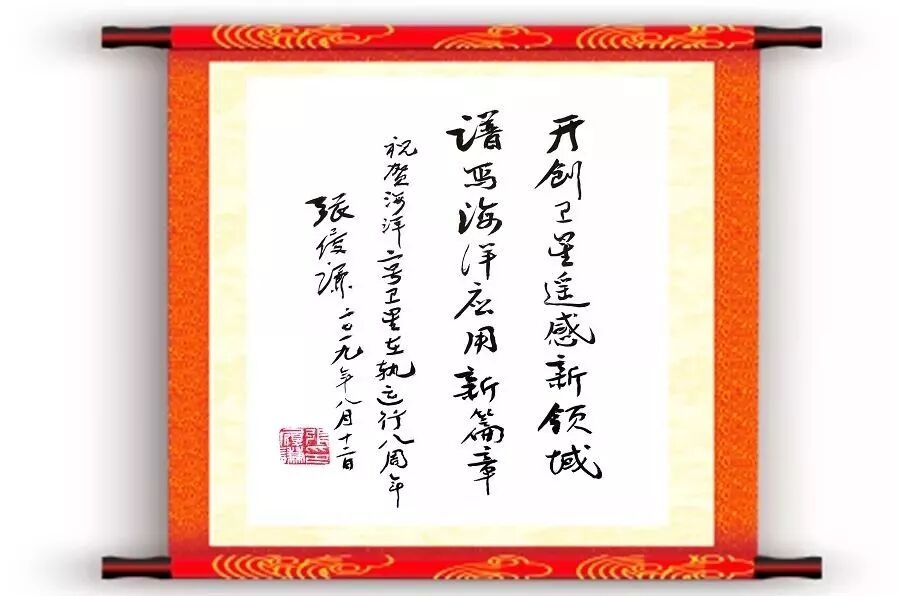 开创卫星遥感新领域
谱写海洋应用新篇章
祝贺海洋二号卫星在轨运行八周年
张履谦 二〇一九年八月十二日